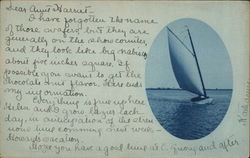 Dear Aunt Harriet
I have forgotten the name
of those wafers but they are
generally on the across counter,
and they look like big nabiscos
about five inches square. If
possible you want to get the
chocolate and flavor. Here ends
my information
Everything is fine up here
Helen and I grow lazier each
day, in anticipation of the stren
uous time coming next week —
Howard's vacation.
Hope you have a good time at C. Grove and after